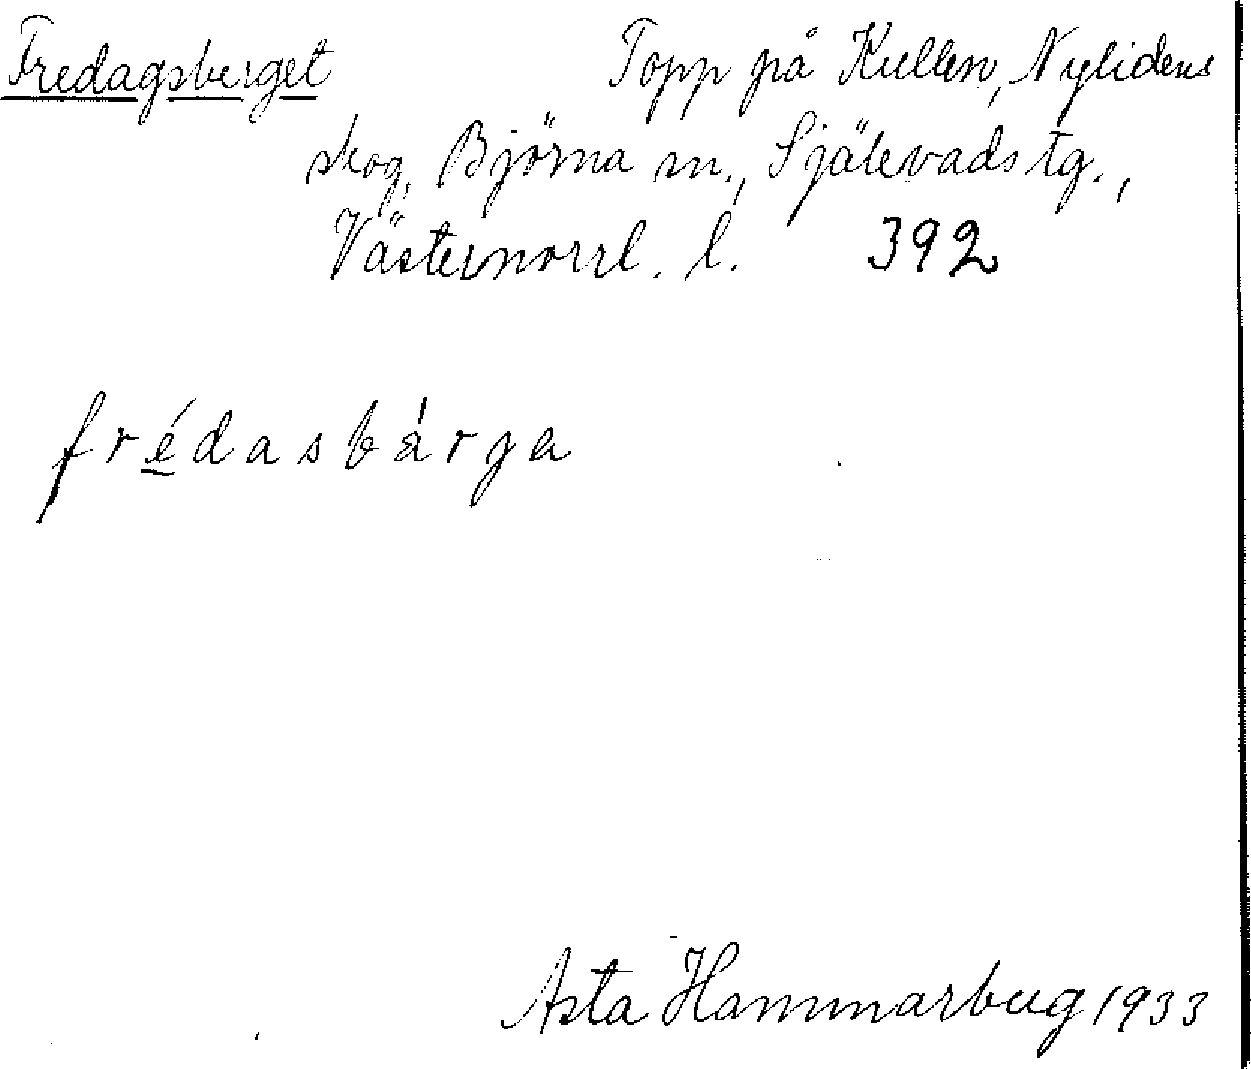 Fredagsberget Topp på Kullen, Nylidens
skog, Björna sn., Själevads tg.,
Västernorrl. l. 392
frédasbárga
Asta Hammarberg 1933